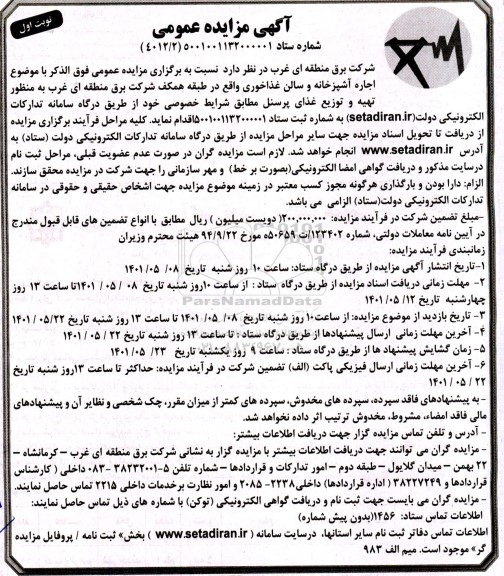 نوبت اول
آگهی مزایده عمومی
شماره ستاد ۵۰۰۱۰۰۱۱۳۲۰۰۰۰۰۱ (۴۰۱۲/۲)
شرکت برق منطقه ای غرب در نظر دارد نسبت به برگزاری مزایده عمومی فوق الذکر با موضوع
اجاره آشپزخانه و سالن غذاخوری واقع در طبقه همکف شرکت برق منطقه ای غرب به منظور
تهیه و توزیع غذای پرسنل مطابق شرایط خصوصی خود از طریق درگاه سامانه تدارکات
الکترونیکی دولت(setadiran.ir) به شماره ثبت ستاد ۵۰۰۱۰۰۱۱۳۲۰۰۰۰۰۱اقدام نماید. کلیه مراحل فرآیند برگزاری مزایده
از دریافت تا تحویل اسناد مزایده جهت سایر مراحل مزایده از طریق درگاه سامانه تدارکات الکترونیکی دولت (ستاد) به
آدرس www.setadiran.ir انجام خواهد شد. لازم است مزایده گران در صورت عدم عضویت قبلی، مراحل ثبت نام
درسایت مذکور و دریافت گواهی امضا الکترونیکی(بصورت بر خط) و مهر سازمانی را جهت شرکت در مزایده محقق سازند.
الزام: دارا بودن و بارگذاری هرگونه مجوز کسب معتبر در زمینه موضوع مزایده جهت اشخاص حقیقی و حقوقی در سامانه
تدارکات الکترونیکی دولت(ستاد) الزامی می باشد.
-مبلغ تضمین شرکت در فرآیند مزایده: ۲۰۰,۰۰۰,۰۰۰( دویست میلیون ) ریال مطابق با انواع تضمین های قابل قبول مندرج
در آیین نامه معاملات دولتی، شماره ۱۲۳۴۰۲/ت۵۰۶۵۹ه مورخ ۹۴/۹/۲۲ هیئت محترم وزیران
زمانبندی فرآیند مزایده:
۱-تاریخ انتشار آگهی مزایده از طریق درگاه ستاد: ساعت ۱۰ روز شنبه تاریخ ۰۸/ ۰۵/ ۱۴۰۱
۲- مهلت زمانی دریافت اسناد مزایده از طریق درگاه ستاد : از ساعت ۱۰روز شنبه تاریخ ۰۸ / ۰۵/ ۱۴۰۱تا ساعت ۱۳ روز
چهارشنبه تاریخ ۱۲/ ۰۵/ ۱۴۰۱
۳- تاریخ بازدید از موضوع مزایده: از ساعت ۱۰ روز شنبه تاریخ ۰۸/ ۰۵/ ۱۴۰۱ تا ساعت ۱۳ روز شنبه تاریخ ۱۴۰۱/۰۵/۲۲
۴- آخرین مهلت زمانی ارسال پیشنهادها از طریق درگاه ستاد : تا ساعت ۱۳ روز شنبه تاریخ ۲۲ / ۰۵/ ۱۴۰۱
۵- زمان گشایش پیشنهاد ها از طریق درگاه ستاد : ساعت ۹ روز یکشنبه تاریخ ۲۳/ ۰۵/ ۱۴۰۱
۶- آخرین مهلت زمانی ارسال فیزیکی پاکت (الف) تضمین شرکت در فرآیند مزایده: حداکثر تا ساعت ۱۳روز شنبه تاریخ
۲۲ / ۰۵/ ۱۴۰۱
-به پیشنهادهای فاقد سپرده، سپرده های مخدوش، سپرده های کمتر از میزان مقرر، چک شخصی و نظایر آن و پیشنهادهای
مالی فاقد امضاء، مشروط، مخدوش ترتیب اثر داده نخواهد شد.
- آدرس و تلفن تماس مزایده گزار جهت دریافت اطلاعات بیشتر:
- مزایده گران می توانند جهت دریافت اطلاعات بیشتر با مزایده گزار به نشانی شرکت برق منطقه ای غرب – کرمانشاه –
۲۲ بهمن – میدان گلایول – طبقه دوم – امور تدارکات و قراردادها – شماره تلفن ۵-۳۸۲۳۲۰۰۱ -۰۸۳ داخلی ( کارشناس
قراردادها و ۳۸۲۲۷۲۴۹ ( اداره قراردادها) داخلی۲۲۳۸- ۲۰۸۵ و امور نظارت برخدمات داخلی ۲۲۱۵ تماس حاصل نمایند.
- مزایده گران می بایست جهت ثبت نام و دریافت گواهی الکترونیکی (توکن) با شماره های ذیل تماس حاصل نمایند:
اطلاعات تماس ستاد: ۱۴۵۶(بدون پیش شماره)
اطلاعات تماس دفاتر ثبت نام سایر استانها، درسایت سامانه ( www.setadiran.ir ) بخش» ثبت نامه / پروفایل مزایده
گر» موجود است. میم الف ۹۸۳
ParsNamadData